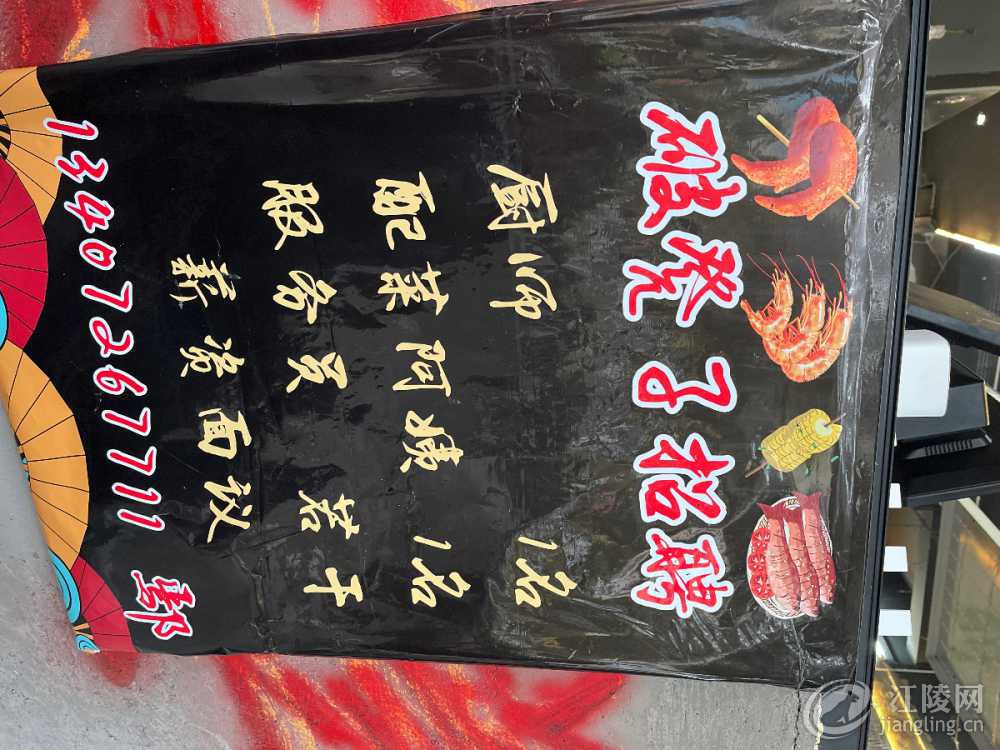 破凳子招聘
厨师 1名
配菜阿姨 1名
服务员 若干
薪资面议
13407267711
江陵网
jiangling.cn